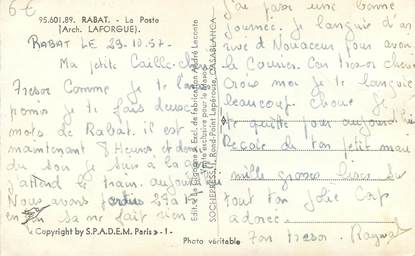 6€
95.601.89. RABAT. - La Poste
(Arch. LAFORGUE).
RABAT LE 29.10.57.
Ma petite Caille
Tresor Comme je te l'ai
promis je te fais deux
mots de Rabat. il est
maintenant 8 Heures et demi
du soir je suis à la gare
j'attend le train. aujourd
Nous avons perdu 27 à 1
en on sa ne fait rien
Copyright by S.P.A.D.E.M. Paris - 1 -
Edit. "La Cigogne" Excl. de fabrication André Leconte
Vente exclusive pour le Maroc
SOCHEPRESS, 1, Rond-Point Lapérouse, CASABLANCA
Photo véritable
j'ai passé une bonne
journée. Je languis d'ar
rivé à Nouaceur pour avoir
le Courrier. Ton tresor cheri
Crois moi je te languis
beaucoup. Choue je
te quitte pour aujourd'hui
Reçois de ton petit mari
mille grosses bises sur
tout ton Jolie Corp
adorée.
Ton tresor. Raymond